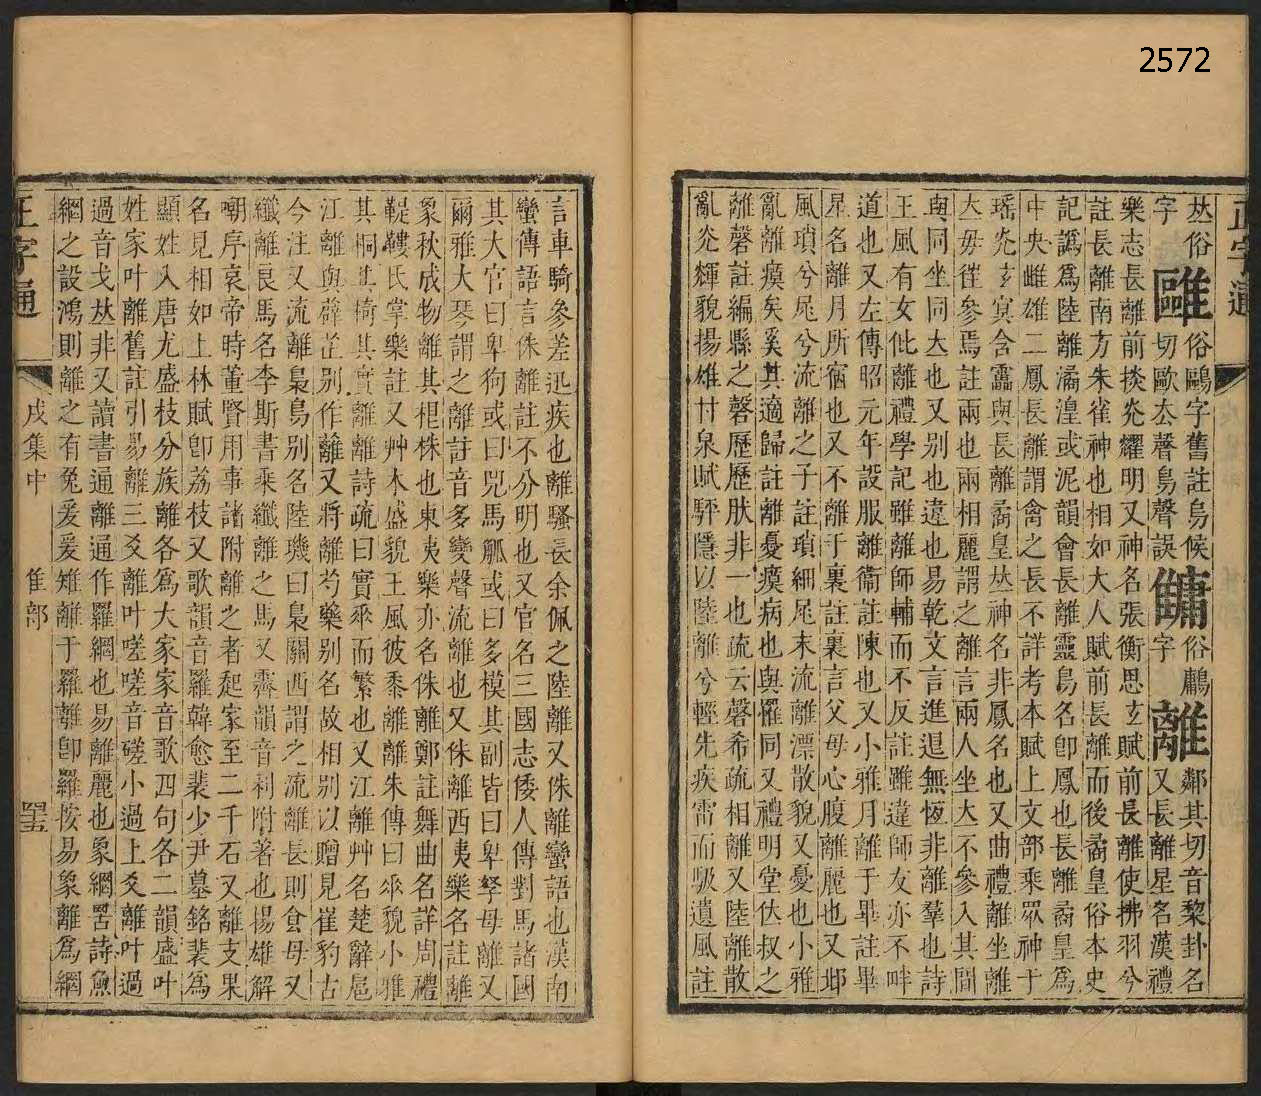 2572
正字通
𠀤俗
字
䧢
俗鷗字舊註烏候
切歐去聲鳥聲誤
鏞
俗鷛
字
離
鄰其切音黎卦名
又長離星名漢禮
樂志長離前掞光耀明又神名張衡思玄賦前長離使拂羽兮
註長離南方朱雀神也相如大人賦前長離而後矞皇俗本史
記譌爲陸離潏湟或泥韻會長離靈鳥名卽鳳也長離矞皇爲
中央雌雄二鳳長離謂禽之長不詳考本賦上文部乘眾神于
瑤光玄冥含靁與長離矞皇𠀤神名非鳳名也又曲禮離坐離
立毋徃參焉註兩也兩相麗謂之離言兩人坐立不參入其間
與同坐同立也又别也違也易乾文言進退無恆非離羣也詩
王風有女仳離禮學記雖離師輔而不反註雖違師友亦不畔
道也又左傳昭元年設服離衛註陳也又小雅月離于畢註畢
星名離月所宿也又不離于裏註裏言父母心腹離麗也又邶
風瑣兮尾兮流離之子註瑣細尾末流離漂散貌又憂也小雅
亂離瘼矣奚其適歸註離憂瘼病也與罹同又禮明堂位叔之
離磬註編縣之磬歷歷肰非一也疏云磬希疏相離又陸離散
亂光輝貌揚雄甘泉賦騈隱以陸離兮輕先疾雷而馺遺風註
言車騎參差迅疾也離騷長余佩之陸離又侏離蠻語也漢南
蠻傳語言侏離註不分明也又官名三國志倭人傳對馬諸國
其大官曰卑狗或曰兕馬觚或曰多模其副皆曰卑孥母離又
爾雅大琴謂之離註音多變聲流離也又侏離西夷樂名註離
象秋成物離其柤株也東夷樂亦名侏離鄭註舞曲名詳周禮
鞮鞻氏掌樂註又艸木盛貌王風彼黍離離朱傳曰𠂹貌小雅
其桐其椅其實離離詩疏曰實𠂹而繁也又江離艸名楚辭扈
江離與薜芷别作蘺又將離芍藥别名故相别以贈見崔豹古
今注又流離梟鳥别名陸璣曰梟關西謂之流離長則食母又
纖離良馬名李斯書乘纖離之馬又霽韻音利附著也揚雄解
嘲序哀帝時董賢用事諸附離之者起家至二千石又離支果
名見相如上林賦卽荔枝又歌韻音羅韓愈裴少尹墓銘裴爲
顯姓入唐尤盛枝分族離各爲大家家音歌四句各二韻盛叶
姓家叶離舊註引易離三爻離叶嗟嗟音磋小過上爻離叶過
過音戈𠀤非又讀書通離通作羅網也易離麗也象網罟詩魚
網之設鴻則離之有兔爰爰雉離于羅離卽羅按易象離爲網
正字通
戌集中
隹部
四五